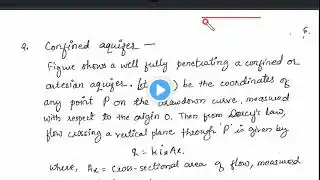 2. Confined aquifer —
Figure shows a well fully penetrating a confined or
artesian aquifer. (et be the coordinates of
any point P on the drawdown curve, measured
with respect to the origin O. Then from Darcy's law,
flow crossing a vertical plane through 'P' is given by
q = k ix Ax.
where, Ax = cross-sectional area of flow, measured